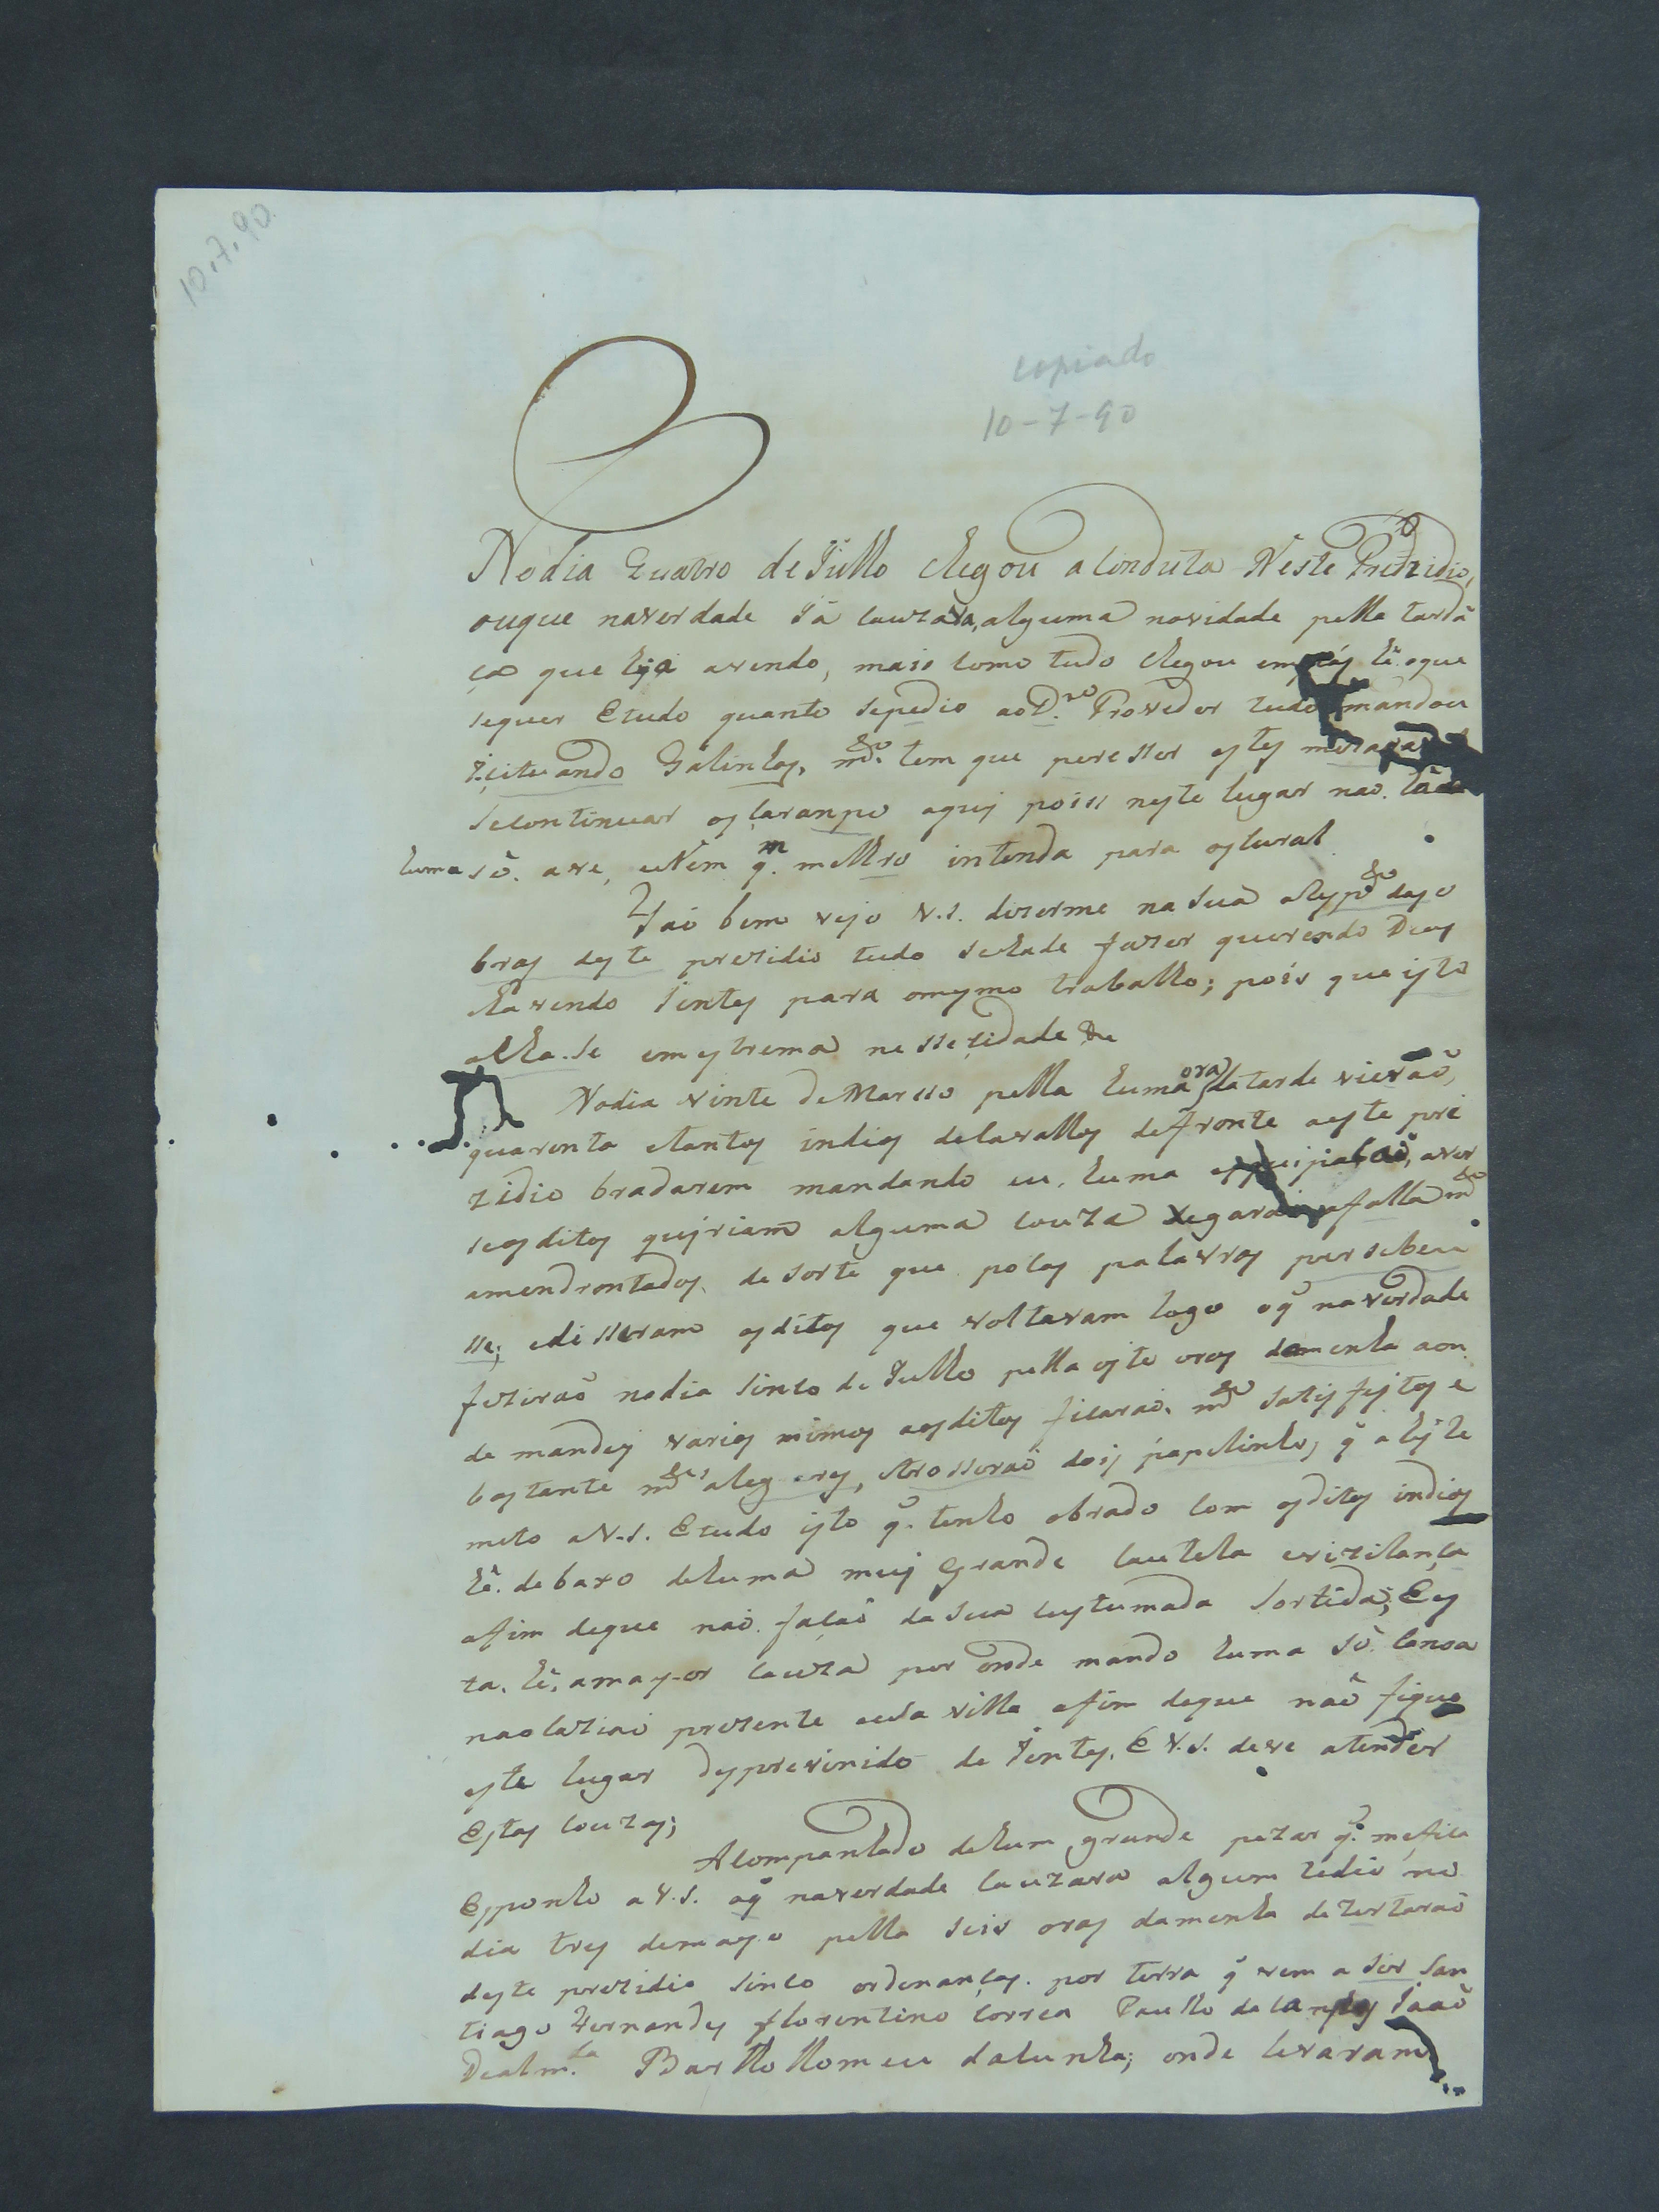 10.7.90.
copiado
10-7-90
No dia Quatro de Julho chegou a Conduta Neste Prezidio,
ouque naverdade Já cauzava, alguma novidade pella tardã
ça que hja avendo, mais como tudo chegou em hé. oque
sequer Etudo quanto sepedio ao D.or Provedor tudo mandou
Galinhas, m.to tem que peresser estes
secontinuar osarampo aquj poiss neste lugar naõ.
huma só. ave, eNem q.m melhro intenda para oscurar.
Jaõ bem vejo V.S. dizerme na Sua Resp.to daso
bras deste prezidio tudo sehade fazer querendo Deos
ehavendo Jentes para omesmo trabalho; pois que isto
acha.se emestrema nessesidade &a
Nodia vinte de Marsso pella huma ora datarde vieraõ,
quarenta etantos indios delavallos defronte aeste pre
zidio bradarem mandando eu, huma esquipasaõ, aver
seosditos qujriam alguma couza afalla m.to
amendrontados, desorte que polas palavras persebeu
sse; edisseram osditos que voltavam logo oq̃ naverdade
fizeraõ nodia Sinco de Julho pella oyto oras damenha aon
de mandej varios mimos aosditos ficaraõ. m.to satisfejtos e
bastante m.tes alegres, etrosseraõ dois papelinhos q̃ aRejte
meto aV.S. Etudo isto q̃. tenho obrado com osditos indios
hé. debaxo dehuma muj Grande Cautela evizilança
afim deque naõ. façaõ dasua custumada Sortida; Es
ta. hé, amayor cauza por onde mando huma Só. Canoa
naocaziaõ prezente aessa villa afim deque naõ fique
este lugar desprevinido de Jentes. E V.S. deve atender
Estas couzas;
Acompanhado dehum grande pezar q̃. mefica
Esponho a V.S. oq̃ naverdade cauzara algum tedio no
dia tres demayo pella seis oras damenha dezertaraõ
deste prezidio sinco ordenanças. por terra q̃ vem a Ser San
tiago Fernandes florentino Correa Paullo dacampos Joaõ
Dealm.da Barthollomeu dacunha; onde levaram